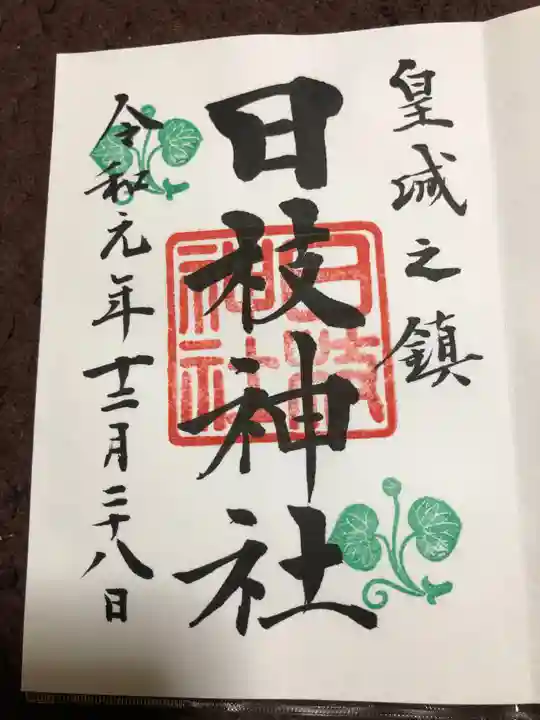 皇城之鎮
日枝神社
日枝神社
令和元年十二月二十八日